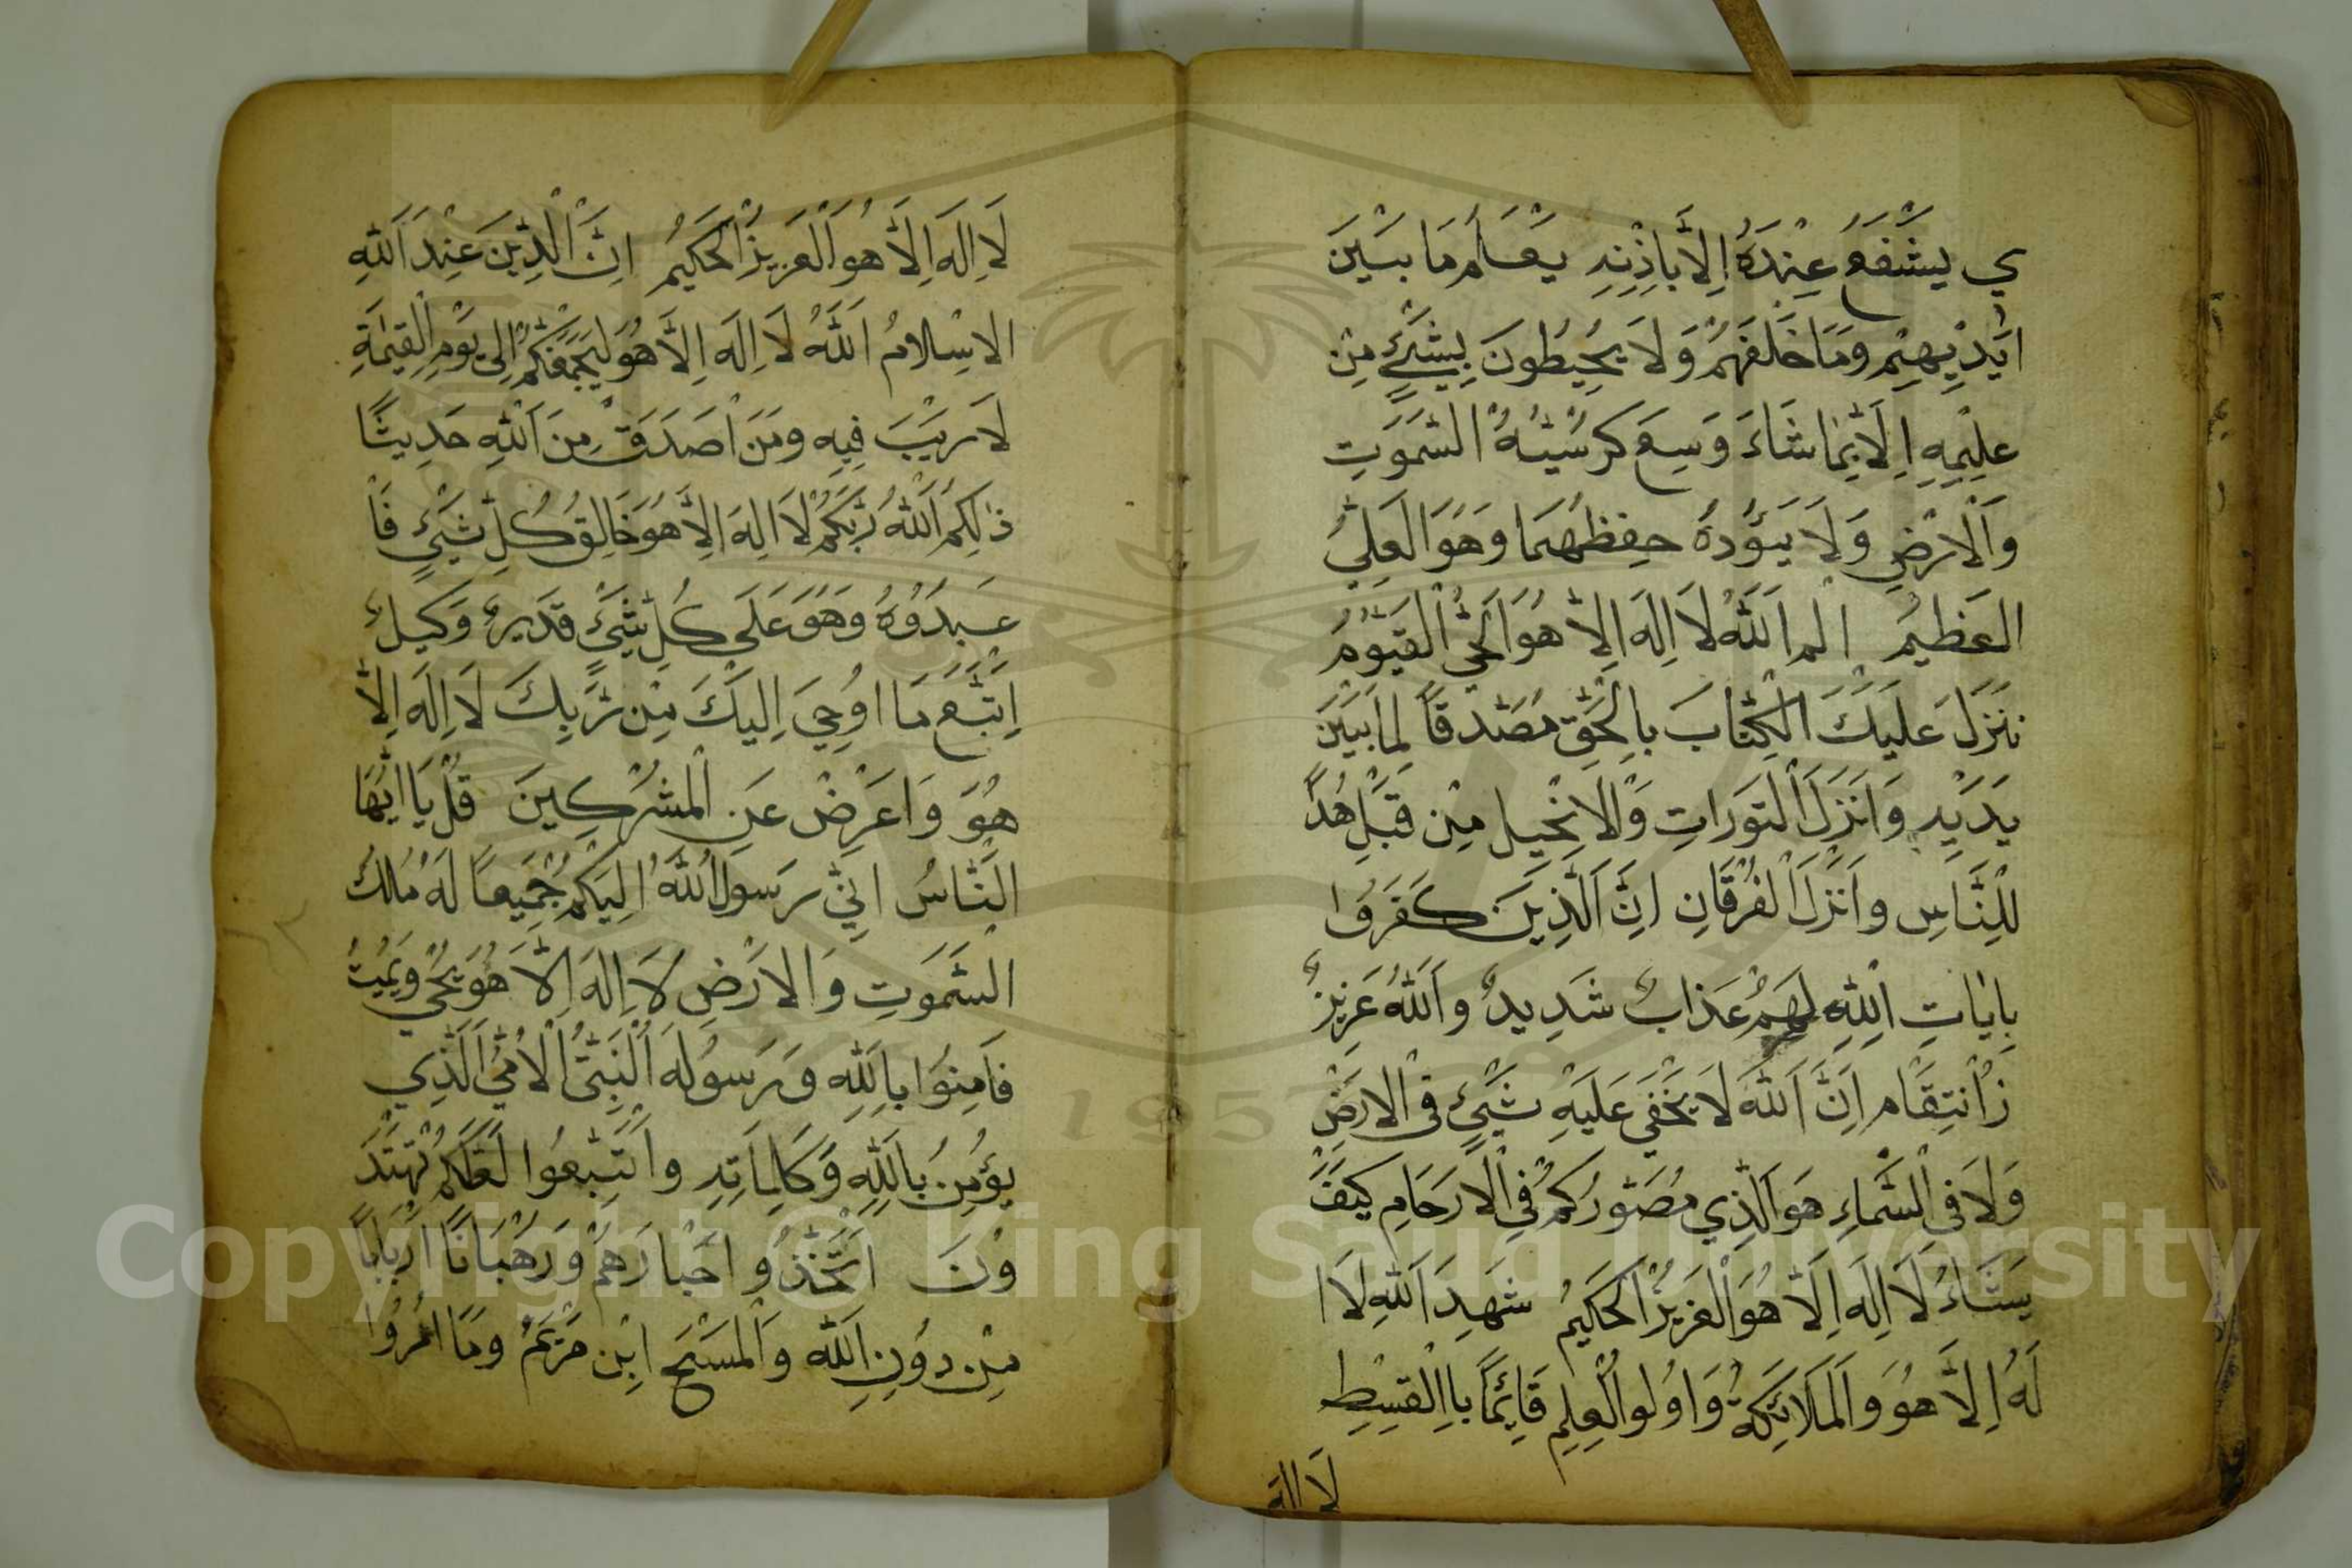 ي يشفع عنده الا باذنه يعلم ما بين
ايديهم وما خلفهم ولا يحيطون بشيء من
علمه الا بما شاء وسع كرسيه السموت
والارض ولا يؤده حفظهما وهو العلي
العظيم الم الله لا اله الا هو الحي القيوم
نزل عليك الكتاب بالحق مصدقا لما بين
يديه وانزل التورات والانجيل من قبل هدا
للناس وانزل الفرقان ان الذين كفروا
بايات الله لهم عذاب شديد والله عزيز
زانتقام ان الله لا يخفي عليه شيء في الارض
ولا في السماء هو الذي مصوركم في الارحام كيف
يشاء لا اله الا هو العزيز الحكيم شهد الله لا ا
له الا هو والملائكة واولوا العلم قائما باالقسط
لا اله
لا اله الا هو العزيز الحكيم ان الدين عند الله
الاسلام الله لا اله الا هو ليجمعنكم الى يوم القيمة
لا ريب فيه ومن اصدق من الله حديثا
ذالكم الله ربكم لا اله الا هو خالق كل شيء فا
عبدوه وهو على كل شيء قدير وكيل
اتبع ما اوحي اليك من ربك لا اله الا
هو واعرض عن المشركين قل يا ايها
الناس اني رسول الله اليكم جميعا له ملك
السموت والارض لا اله الا هو يحي ويميت
فامنوا بالله ورسوله النبي الامي الذي
يؤمن بالله وكالماته واتبعوا لعلكم تهتد
ون اتخذو احبارهم ورهبانا اربابا
من دون الله والمسيح ابن مريم وما امروا
Copyright © King Saud University
1957